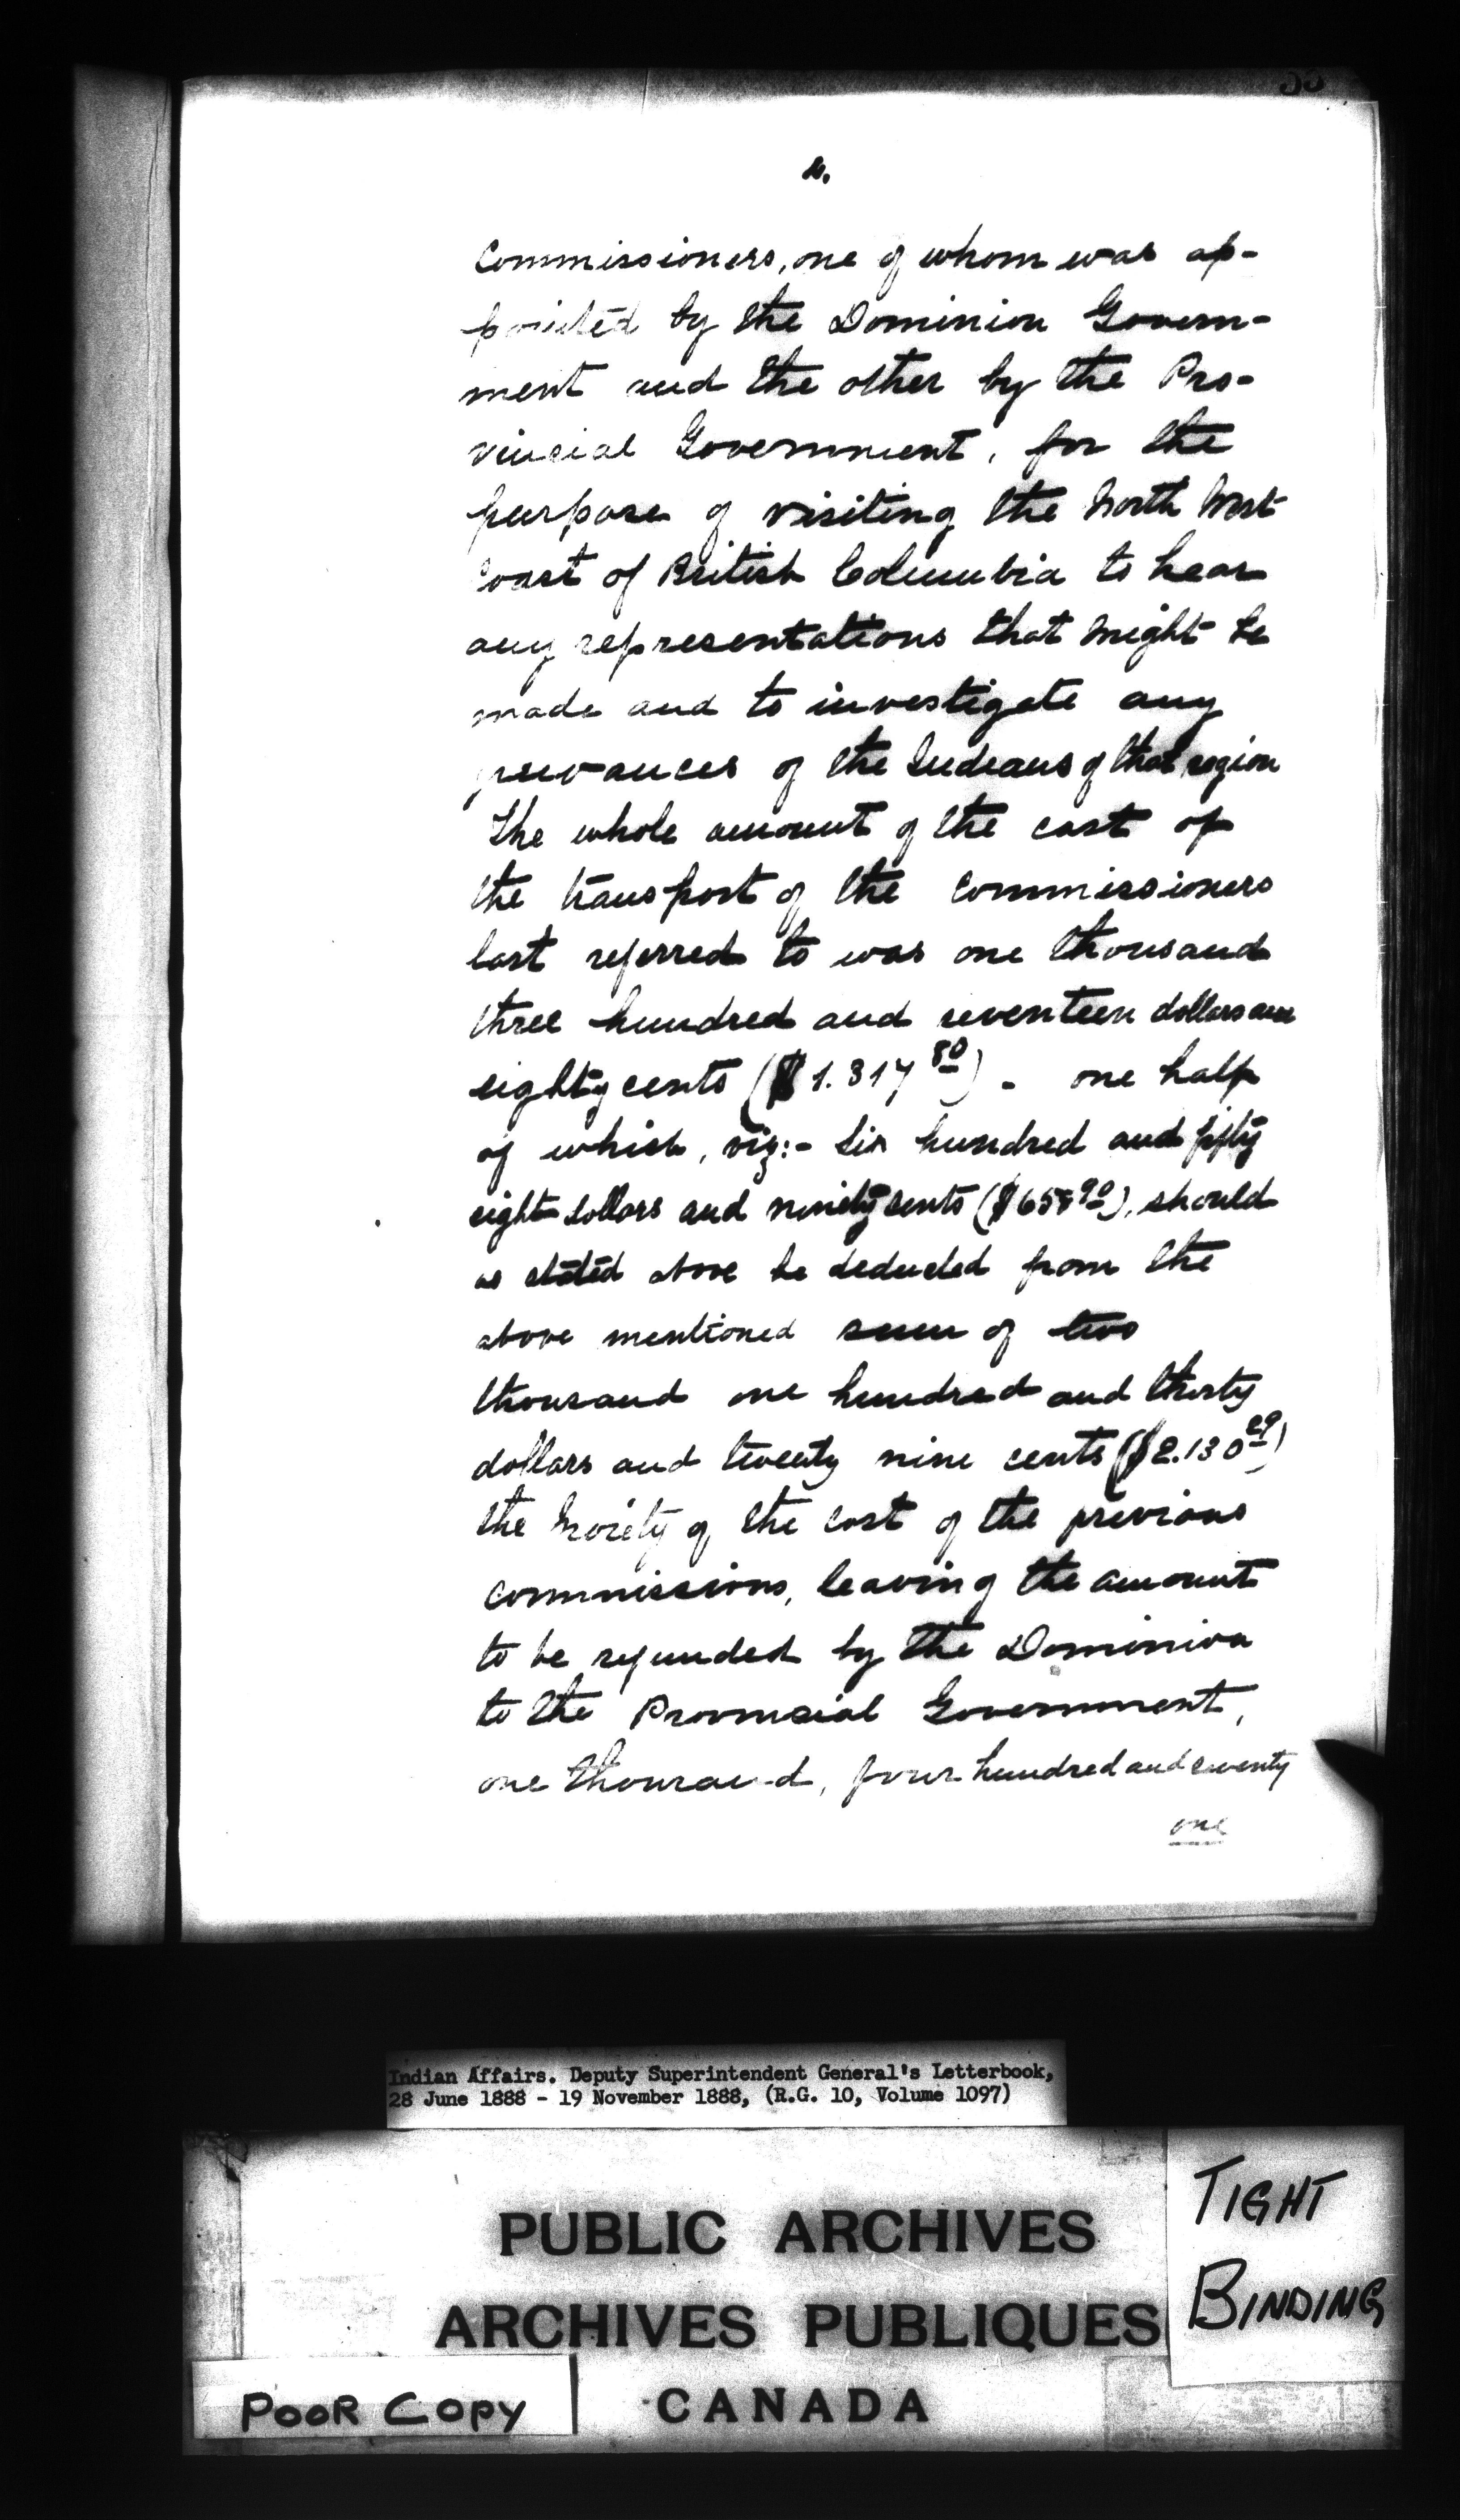 2.
Commissioners, one of whom was ap-
pointed by the Dominion Govern-
ment and the other by the Pro-
vincial Government, for the
purpose of visiting the North West
Coast of British Columbia to hear
any representations that might be
made and to investigate any
grievances of the Indians of that region
The whole amount of the cost of
the transport of the Commissioners
last referred to was one thousand
three hundred and seventeen dollars and
eighty cents ($1.317 80) - one half
of which, viz:- six hundred and fifty
eight dollars and ninety cents ($658 90), should
as stated above be deducted from the
above mentioned sum of two
thousand one hundred and thirty
dollars and twenty nine cents ($2.130 29)
the moiety of the cost of the previous
commissions, leaving the amount
to be refunded by the Dominion
to the Provincial Government,
one thousand, four hundred and seventy
one
Indian Affairs. Deputy Superintendent General's Letterbook,
28 June 1888 - 19 November 1888, (R.G. 10, Volume 1097)
PUBLIC ARCHIVES
ARCHIVES PUBLIQUES
CANADA
TIGHT
BINDING
POOR COPY